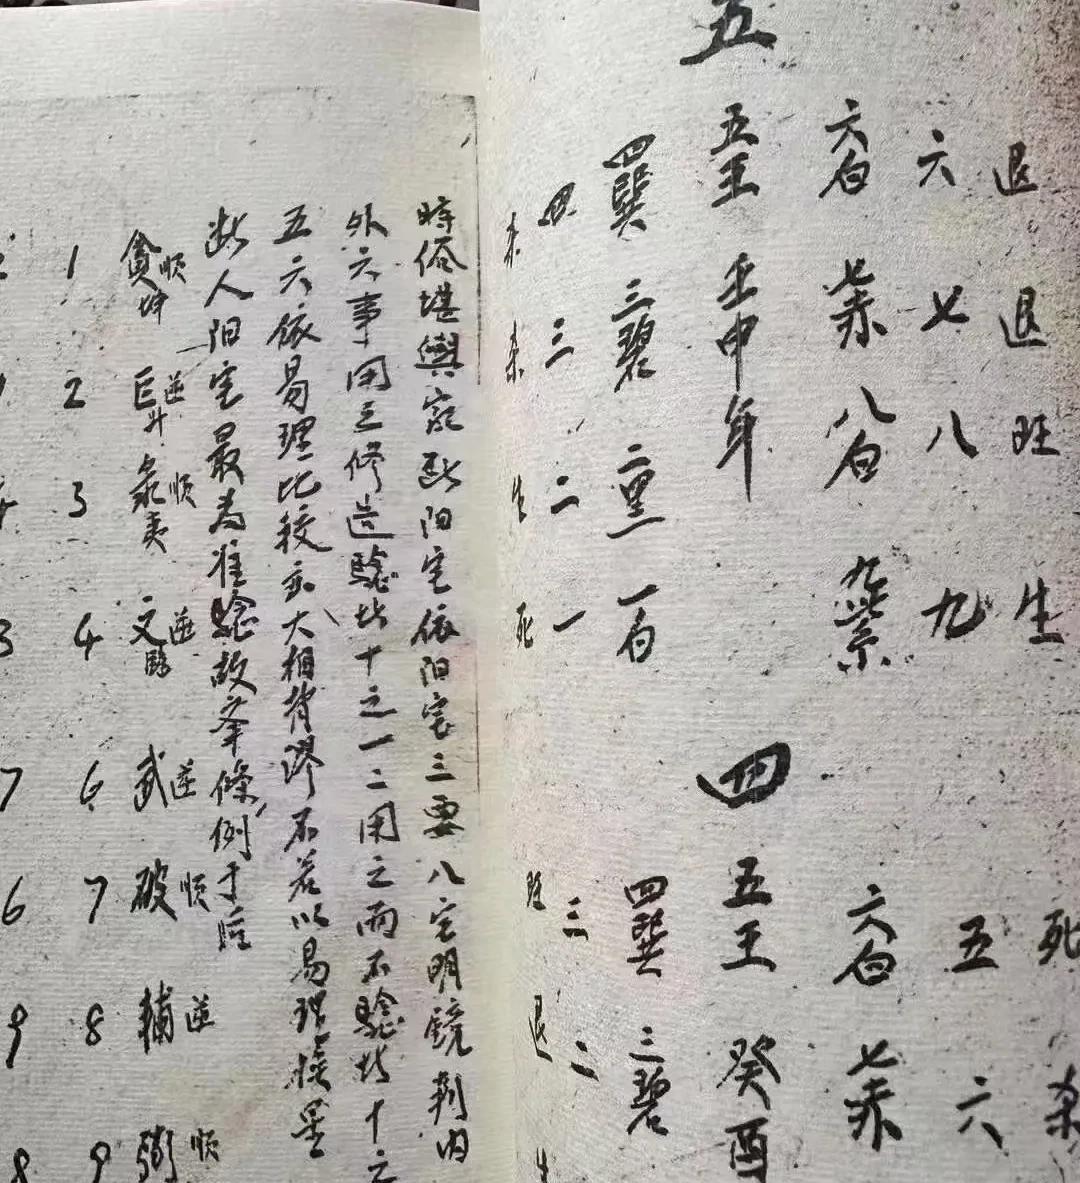 退 退 旺 生
六 七 八 九
六白 七赤 八白 九紫
五 五王 壬申年
四巽 三碧 二黑 一白
四 三 二 一
杀 杀 生 死
死 杀
五 六
六白 七赤
四 五王 癸酉
四巽 三碧
三 二
旺 退
時俗堪輿家断阳宅依阳宅三要八宅明鏡判内
外六事用之修造驗者十之一二用之而不驗者十之
五六依易理比較亦大相背謬不若以易理挨星
断人阳宅最為准驗故举條例于后
順 逆 順 逆 逆 順 逆 順
貪 巨 文 武 破 輔 弼
1 2 3 4 6 7 8 9
3 7 6 9 8